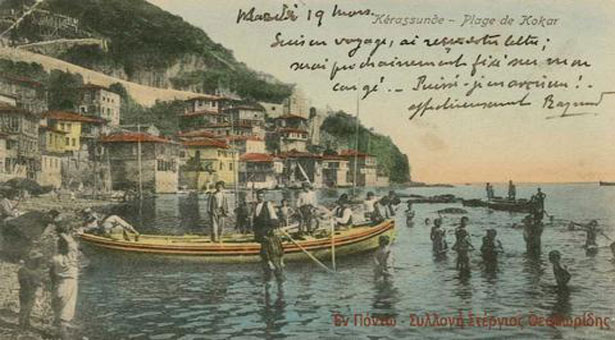 Mardi 19 Mars.
Kérassunde – Plage de Kokar
Suis en voyage, ai reçu votre lettre;
serai prochainement fixé sur mon
congé. – Puissé-je en arrière!..
affectueusement
Εν Πόντω - Συλλογή Στέργιος Θεοδωρίδης